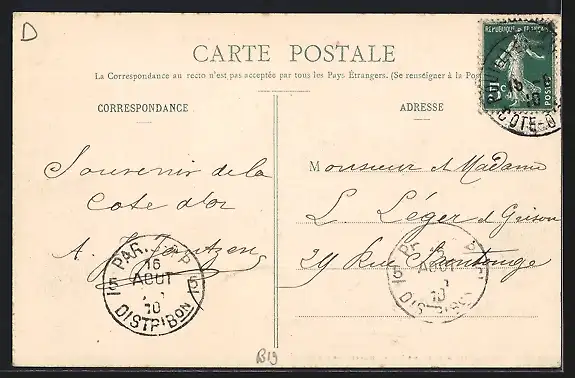 D
CARTE POSTALE
La Correspondance au recto n'est pas acceptée par tous les Pays Étrangers. (Se renseigner à la Pos
CORRESPONDANCE
ADRESSE
REPUBLIQUE FRANÇAISE
5c
POSTES
COTE-D'O
Souvenir de la
Cote d'Or
A.
Monsieur et Madame
L. Léger d Grison
29 Rue Saintonge
PAR. P
15
16
AOUT
10
DISTRIBON
15
AOUT
10
DISTRIBON
B19